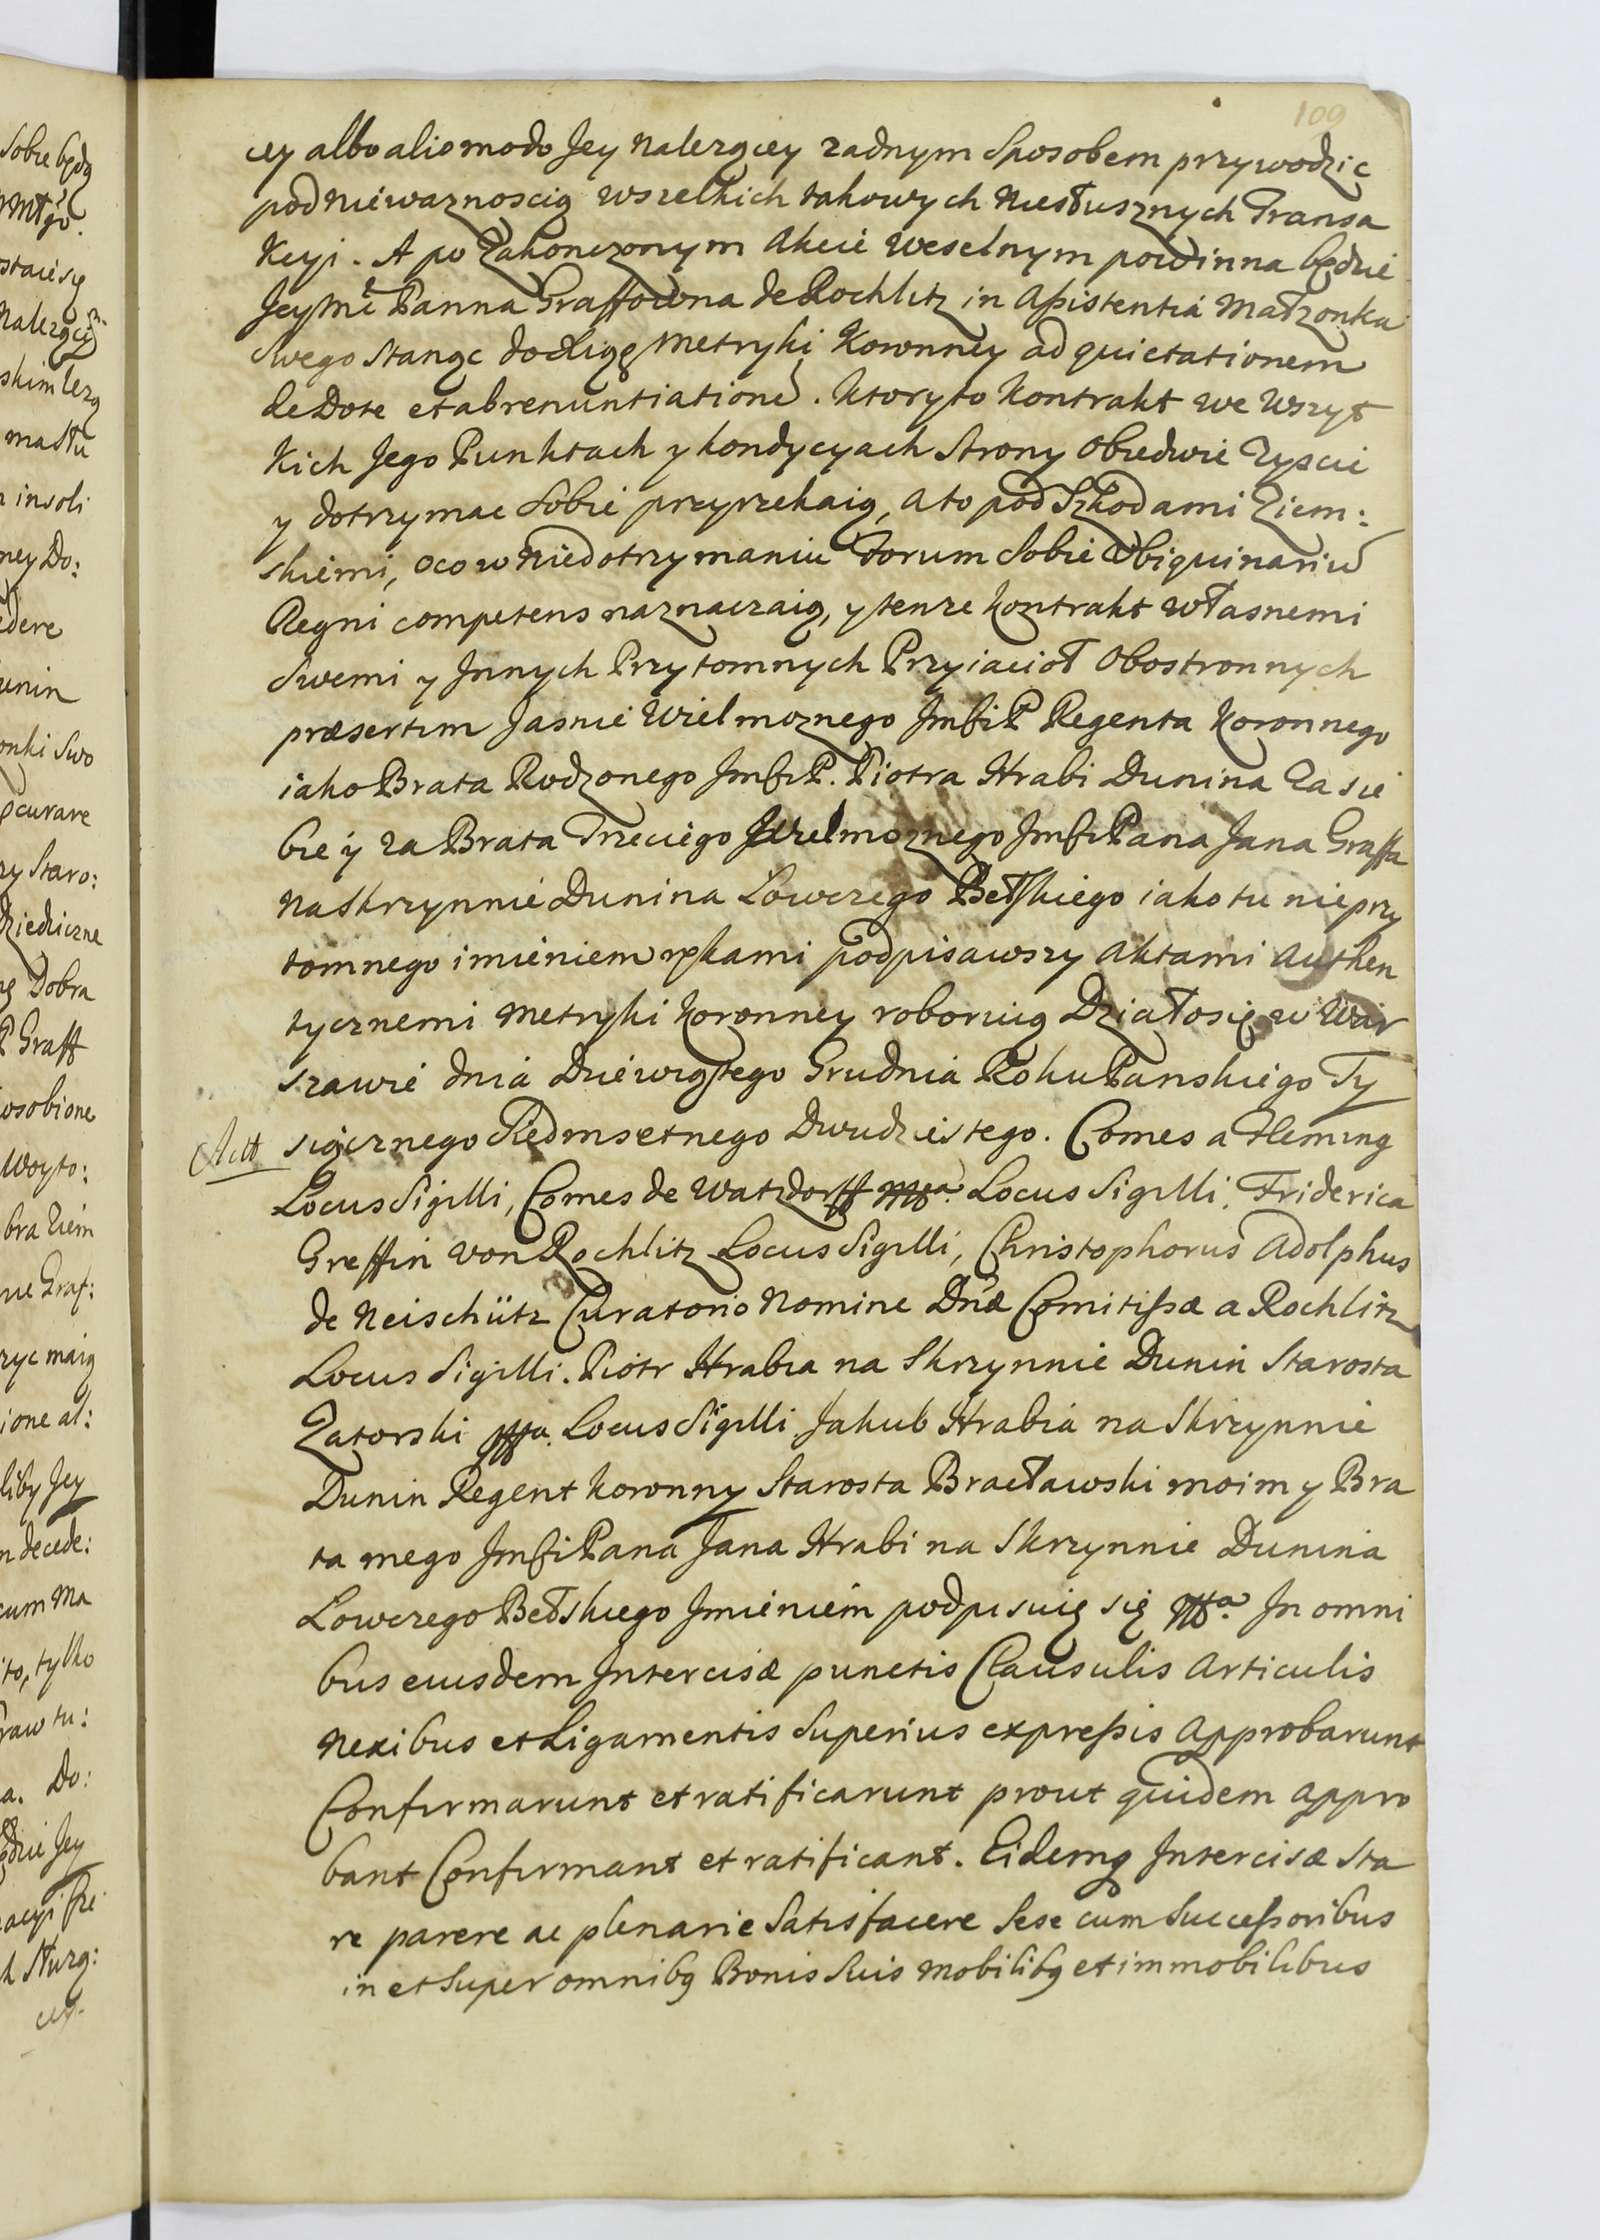 109
cey albo alio modo Jey nalezącey zadnym Sposobem przywodzic
pod niewaznoscią wszelkich takowych niesłusznych Transa
kcyi. A po Zakonczonym Akcie Weselnym powinna będzie
Jeymć Panna Graffowna de Rochlitz in Assistentia Małzonka
Swego Stanąc do Xiąg Metryki Koronney ad quietationem
de Dote et abrenuntiatione. Ktory to Kontrakt we Wszyt
kich Jego Punktach y kondycyach Strony Obiedwie Zyscic
y dotrzymac Sobie przyrzekaią, a to pod Szkodami Ziem:
skiemi, oco w niedotrzymaniu Forum Sobie Ubiquinariu
Regni competens naznaczaią, y tenze kontrakt własnemi
Swemi y Jnnych Przytomnych Przyiacioł Obostronnych
præsertim Jasnie Wielmoznego Jmści P Regenta Koronnego
iako Brata Rodzonego Jmści P. Piotra Hrabi Dunina Za sie
bie y za Brata Trzeciego Wielmoznego Jmści Pana Jana Graffa
na Skrzynnie Dunina Lowczego Bełskiego iako tu nieprzy
tomnego imieniem rękami podpisawszy Aktami Authen
tycznemi Metryki Koronney roboruią Działo się w War
szawie dnia Dziewiątego Grudnia Roku Panskiego Ty
siącznego Siedmsetnego Dwudziestego. Comes a Fleming
Locus Sigilli, Comes de Watzdorff mpa. Locus Sigilli. Friderica
Greffin von Rochlitz Locus Sigilli, Christophorus Adolphus
de Neischütz Curatorio Nomine Dnæ Comitissæ a Rochlitz
Locus Sigilli. Piotr Hrabia na Skrzynnie Dunin Starosta
Zatorski mpa. Locus Sigilli Jakub Hrabia na Skrzynnie
Dunin Regent Koronny Starosta Bracławski moim y Bra
ta mego Jmści Pana Jana Hrabi na Skrzynnie Dunina
Lowczego Bełskiego Jmieniem podpisuię się mpa. Jn omni
bus eiusdem Jntercisæ punctis Clausulis Articulis
Nexibus et Ligamentis Superius expressis Approbarunt
Confirmarunt et ratificarunt prout quidem appro
bant Confirmant et ratificant. Eidemq Jntercisæ Sta
re parere ac plenarie Satisfacere Sese cum Successoribus
in et Super omnibq Bonis Suis mobilibq et immobilibus